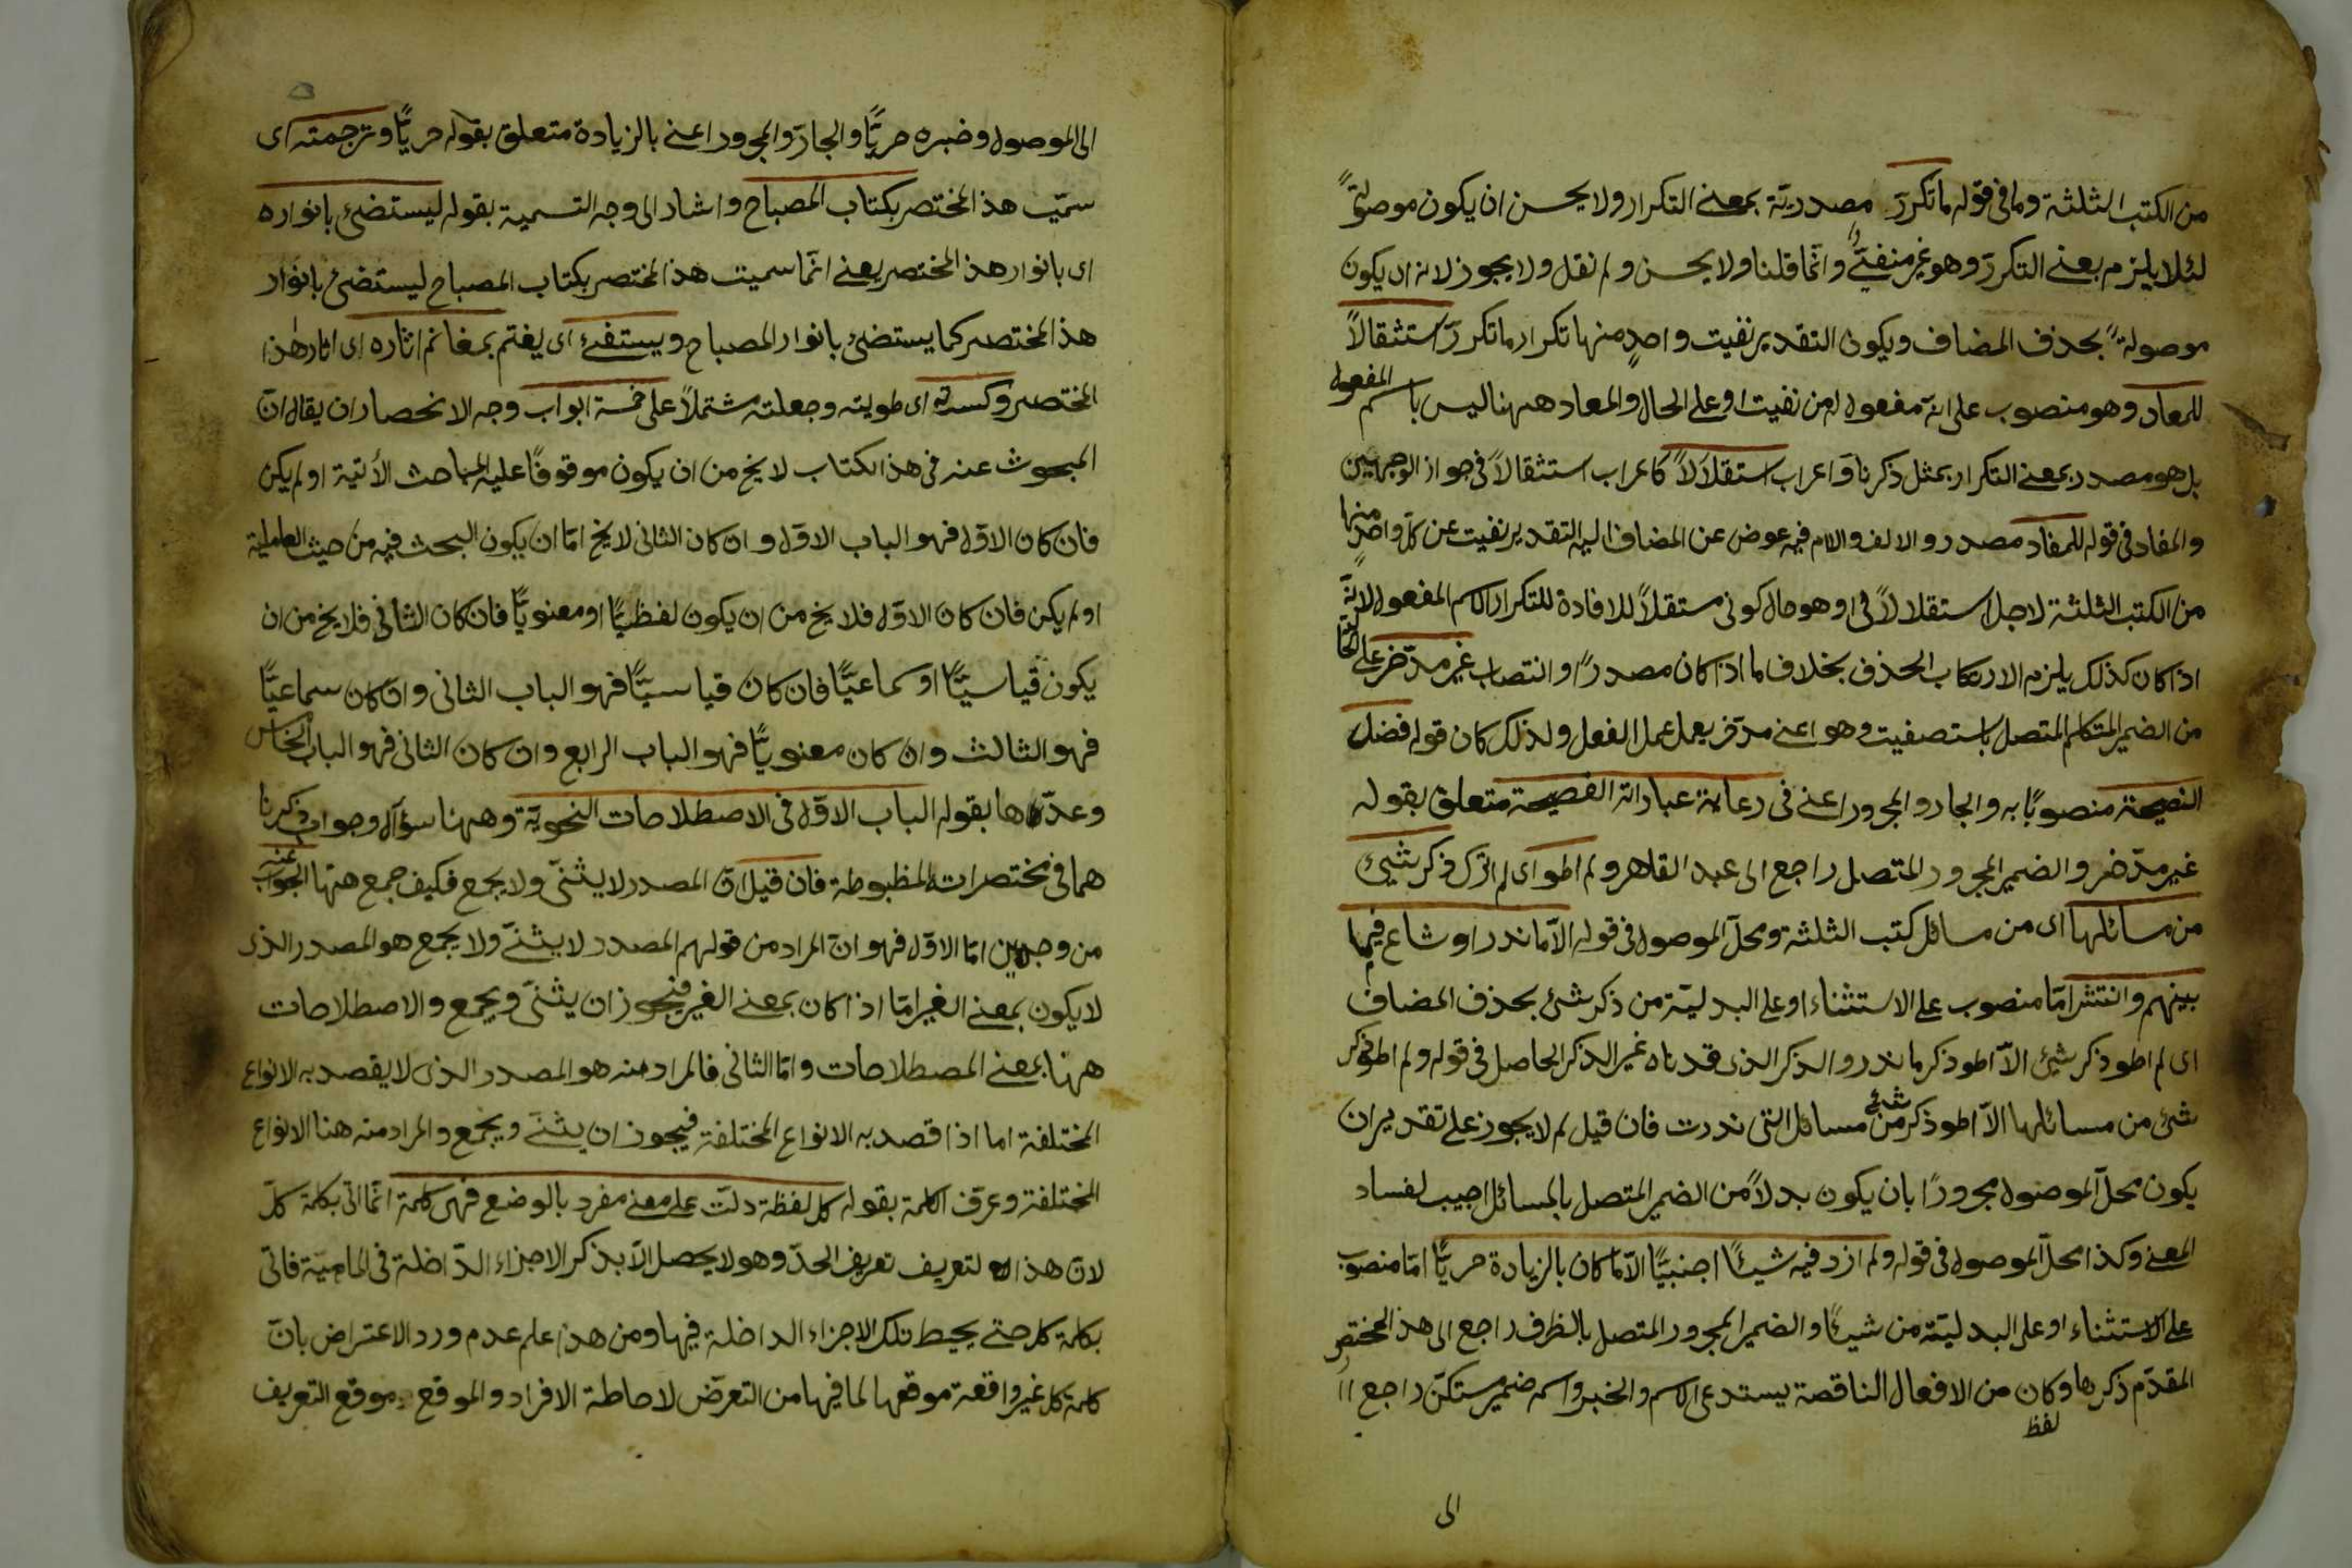 من الكتب الثلثة وما فى قوله ما تكرر مصدرية بمعنى التكرار ولا يحسن ان يكون موصولةً
لئلا يلزم بعنى التكرر وهو غير منفىّ وانّما قلنا ولا يحسن ولم نقل ولا يجوز لانه ان يكون
موصولةً بحذف المضاف ويكون التقدير نفيت واحدٍ منها تكرار ما تكررّ استثقالاً
للمعاد وهو منصوب على انّه مفعول له من نفيت او على الحال والمعاد ههنا ليس باسم المفعول
بل هو مصدر بمعنى التكرار بمثل ذكرنا واعراب استقلالاً كاعراب استثقالاً فى جواز الوجهين
والمفاد فى قوله للمفاد مصدر والالف واللام فيه عوض عن المضاف اليه التقدير نفيت عن كلّ واحدٍ منها
من الكتب الثلثة لاجل استقلالاً فى او هو حال كونى مستقلاً للافادة للتكرار لاسم المفعول لانّه
اذا كان كذلك يلزم الارتكاب الحذف بخلاف ما اذا كان مصدرًا وانتصاب غير مدّخر على الحال
من الضمير المتكلم المتصل باستصفيت وهو اعنى مدّخر يعمل عمل الفعل ولذلك كان قوله فضل
النصيحة منصوبًا به والجار والمجرور اعنى فى رعاية عباراته الفصيحة متعلق بقوله
غير مدّخر والضمير المجرور المتصل راجع الى عبد القاهر ولم اطو اى لم اترك ذكر شيئ
من مسائلها اى من مسائل كتب الثلثة ومحلّ الموصول فى قوله الاّ ما ندر او شاع فيما
بينهم وانتشر امّا منصوب على الاستثناء او على البدلية من ذكر شئ بحذف المضاف
اى لم اطو ذكر شئ الاّ اطو ذكر ما ندر والذكر الذى قدرناه غير الذكر الحاصل فى قوله ولم اطو ذكر
شئ من مسائلها الاّ اطو ذكر شئ من مسائل التى ندرت فان قيل لم لا يجوز على تقدير ان
يكون محلّ الموصول مجرورًا بان يكون بدلاً من الضمير المتصل بالمسائل اجيب لفساد
المعنى وكذا محلّ الموصول فى قوله ولم ازد فيه شيئًا اجنبيًّا الاّ ما كان بالزيادة حريًّا امّا منصوب
على الاستثناء او على البدليّة من شيئًا والضمير المجرور المتصل بالظرف راجع الى هذ المختصر
المقدّم ذكرها وكان من الافعال الناقصة يستدعى الاسم والخبر واسمه ضمير مستكنّ راجع
لفظ
الى
الى الموصول وخبره حريًّا والجارّ والمجرور اعنى بالزيادة متعلق بقوله حريًّا وترجمته اى
سمّيت هذ المختصر بكتاب المصباح واشار الى وجه التسمية بقوله ليستضئ بانواره
اى بانوار هذ المختصر يعنى انّما سميت هذ المختصر بكتاب المصباح ليستضئ بانوار
هذ المختصر كما يستضئ بانوار المصباح ويستفئ اى يغتم بمغانم اثاره اى اثار هذا
المختصر وكسرته اى طويته وجعلته مشتملاً على خمسة ابواب وجه الانحصار ان يقال انّ
المبحوث عنه فى هذ الكتاب لا يخ من ان يكون موقوفًا عليه المباحث الأتية او لم يكن
فان كان الاوّل فهو الباب الاوّل وان كان الثانى لا يخ امّا ان يكون البحث فيه من حيث العاملية
او لم يكن فان كان الاوّل فلا يخ من ان يكون لفظيًّا او معنويًّا فان كان الثانى فلا يخ من ان
يكون قياسيًّا او سماعيًّا فان كان قياسيًّا فهو الباب الثانى وان كان سماعيًّا
فهو الثالث وان كان معنويًّا فهو الباب الرابع وان كان الثانى فهو الباب الخامس
وعدّها بقوله الباب الاوّل فى الاصطلاحات النحويّة وههنا سؤال وجواب ذكرنا
هما فى مختصرات المظبوطة فان قيل انّ المصدر لا يثنّى ولا يجمع فكيف جمع ههنا الجواب عنه
من وجهين امّا الاوّل فهو انّ المراد من قولهم المصدر لا يثنّى ولا يجمع هو المصدر الذى
لا يكون بمعنى الغير امّا اذا كان بمعنى الغير فيجوز ان يثنّى ويجمع والاصطلاحات
ههنا بمعنى المصطلاحات وامّا الثانى فالمراد منه هو المصدر الذى لا يقصد به الانواع
المختلفة اما اذا قصد به الانواع المختلفة فيجوز ان يثنّى ويجمع والمراد منه هنا الانواع
المختلفة وعرّف الكلمة بقوله كل لفظة دلّت على معنى مفرد بالوضع فهى كلمة انّما اتى بكلمة كلّ
لانّ هذا لتعريف تعريف الحدّ وهو لا يحصل الاّ بذكر الاجزاء الدّاخلة فى الماهيّة فاتى
بكلمة كل حتى يحيط تلك الاجزاء الداخلة فيها ومن هذا علم عدم ورد الاعتراض بانّ
كلمة كل غير واقعة موقعها لما فيها من التعرّض لاحاطة الافراد والموقع موقع التعريف